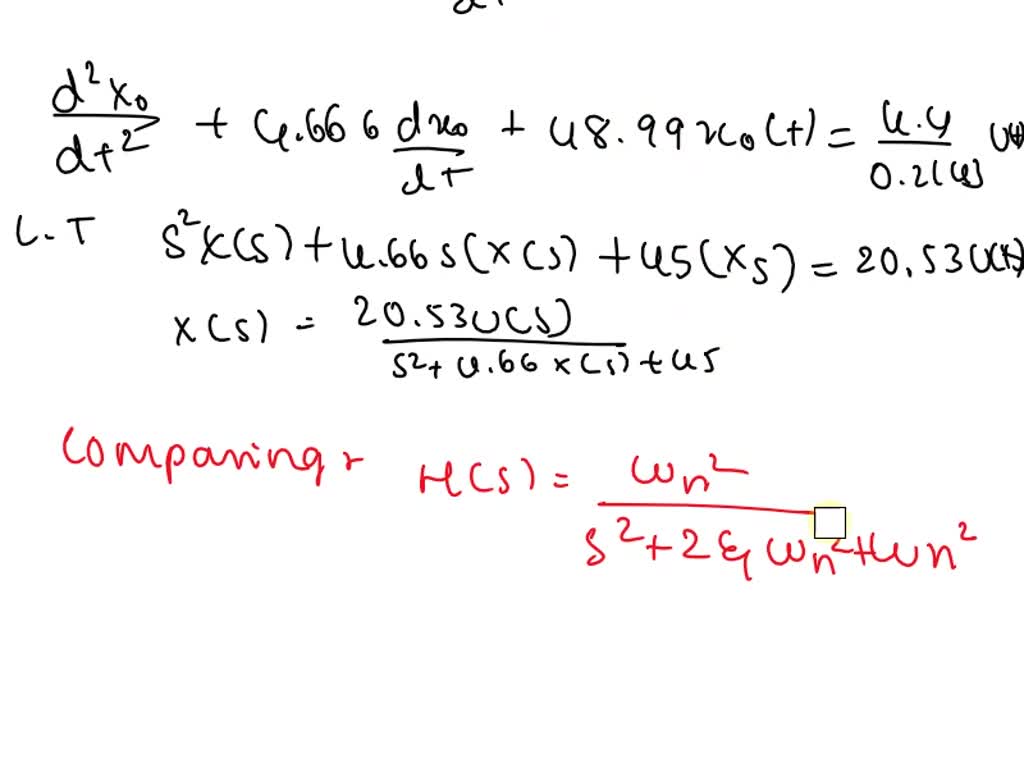 d²x₀/dt² + 4.666 dx₀/dt + 48.99 x₀(t) = 4.4/0.2143 u(t)
L.T s²X(s) + 4.66 s(X(s) + 45(Xs) = 20.53 U(t)
x(s) = 20.53 U(s) / s² + 4.66 x(s) + 45
Comparing
H(s) = ωn² / s² + 2ξ ωn² + ωn²